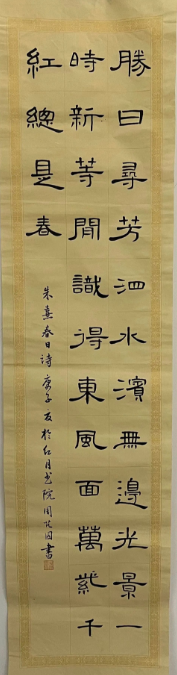 勝日尋芳泗水濱無邊光景一
時新等閒識得東風面萬紫千
紅總是春
朱熹春日詩庚子夏於紅月書院周
書